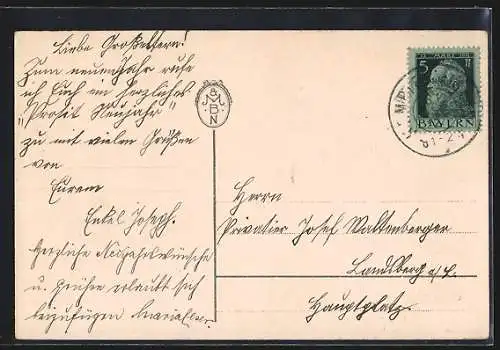 Liebe Großeltern!
Zum neuen Jahr rufe
ich Euch ein herzliches
"Prosit Neujahr"
zu mit vielen Grüßen
von
Eurem
Enkel Joseph.
Herzliche Neujahrswünsche
u. Grüße erlaubt sich
beizufügen
M & J
B
N
5
BAYERN
Herrn
Privatier Josef Waltenberger
Landsberg a/L.
Hauptplatz.